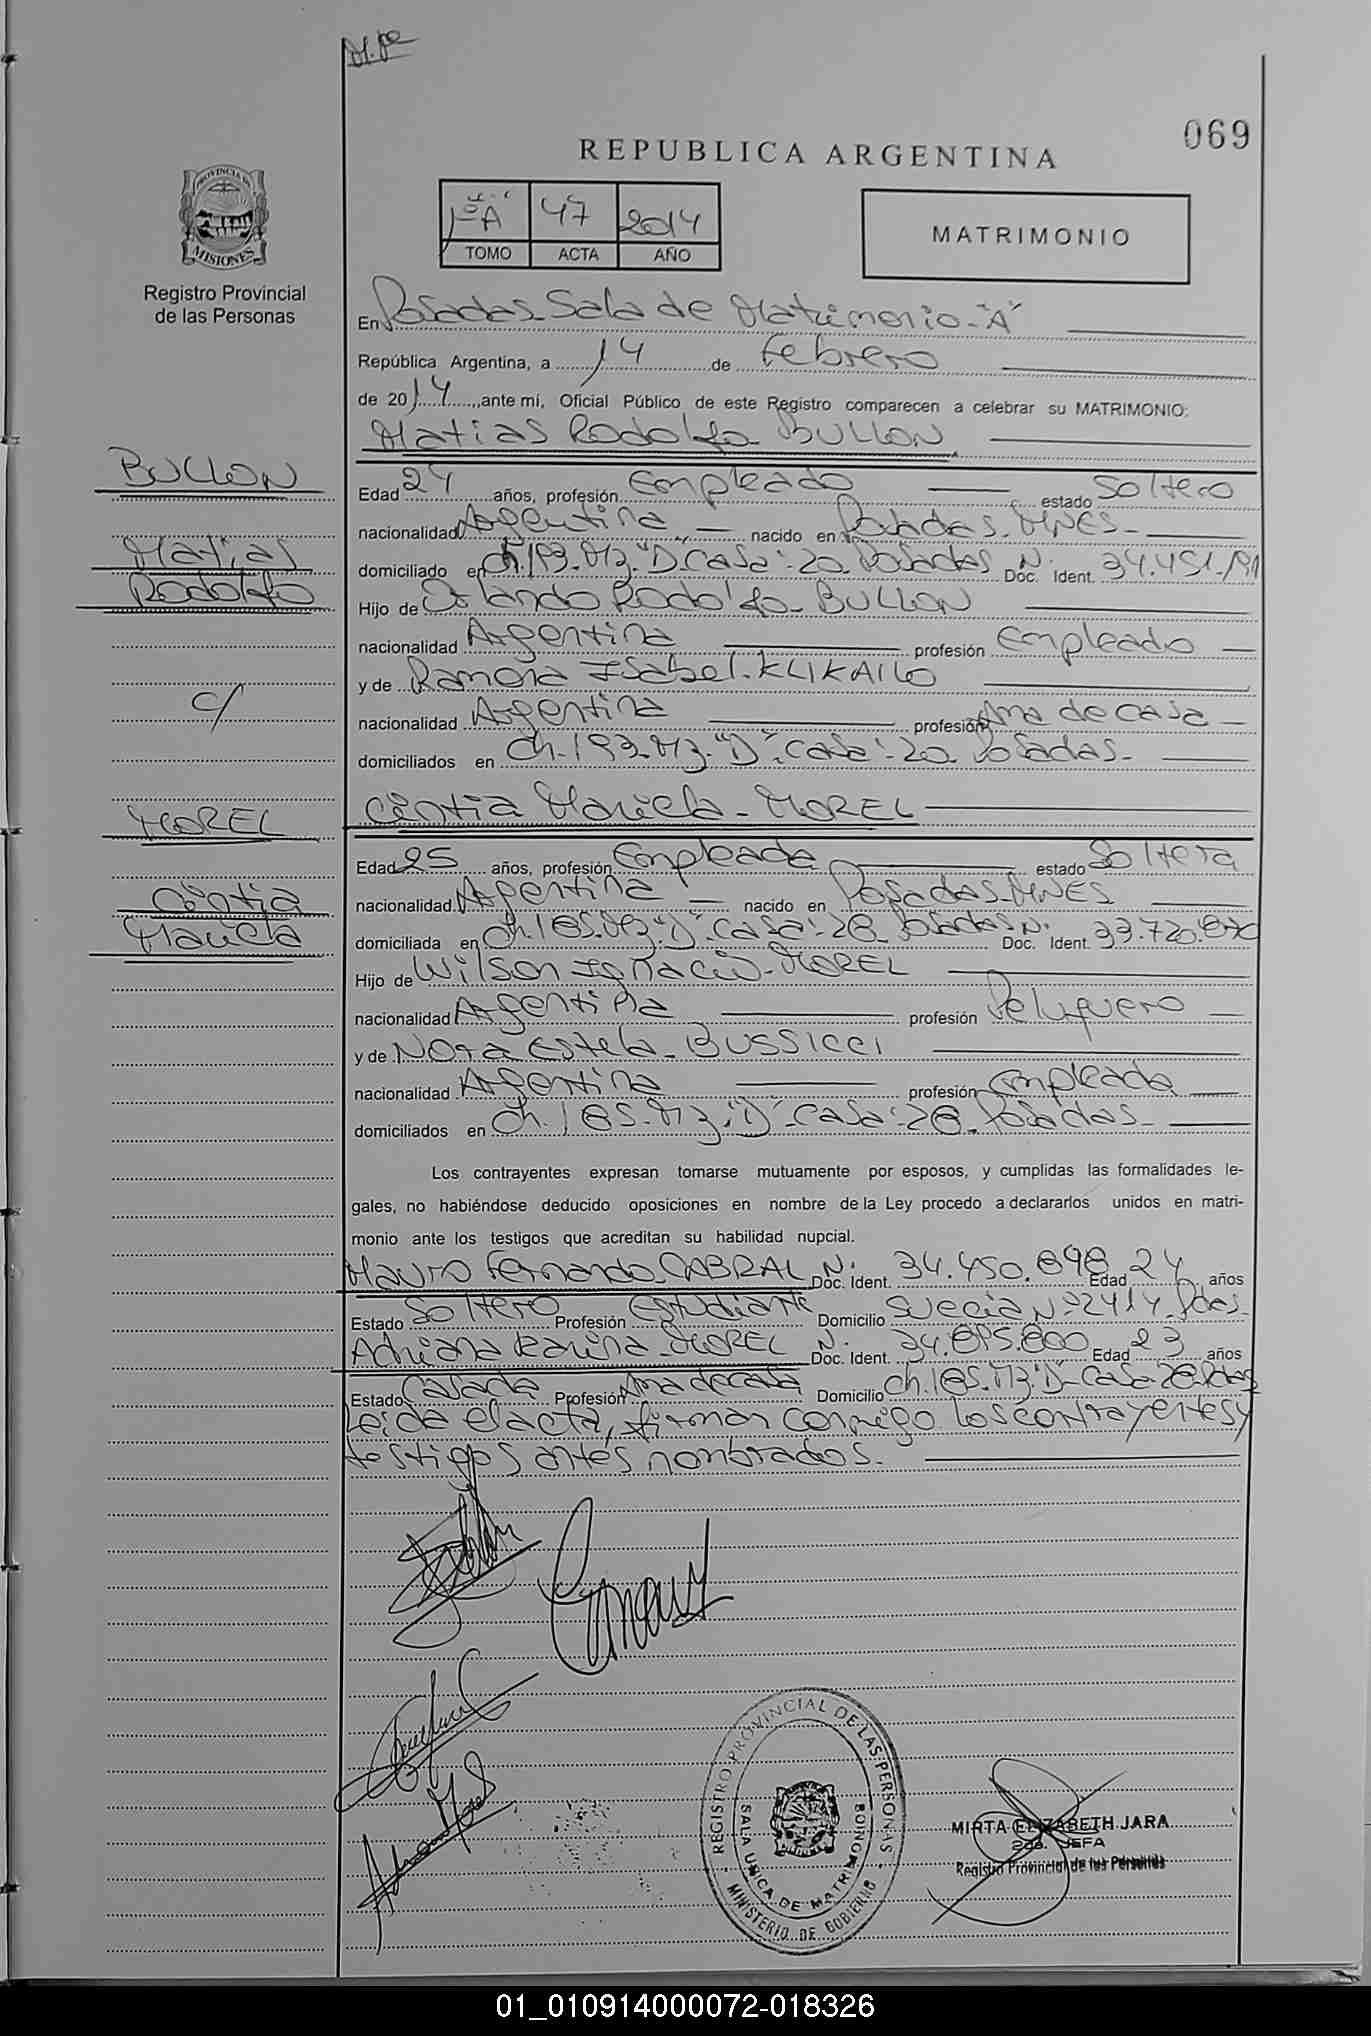 M.pe
069
REPUBLICA ARGENTINA
PROVINCIA DE
MISIONES
Registro Provincial
de las Personas
1º "A" 47 2014
TOMO ACTA AÑO
MATRIMONIO
En Posadas - Sala de Matrimonio - "A"
República Argentina, a 14 de Febrero
de 2014, ante mi, Oficial Público de este Registro comparecen a celebrar su MATRIMONIO:
Matias Rodolfo BULLON
BULLON
Matias
Rodolfo
c/
MOREL
Cintia
Mariela
Edad 24 años, profesión Empleado estado Soltero
nacionalidad Argentina nacido en Posadas - MNES -
domiciliado en ch. 193 - Mz. "D" - Casa: 20 - Posadas Nº Doc. Ident. 34.451.191
Hijo de Orlando Rodolfo - BULLON
nacionalidad Argentina profesión Empleado
y de Ramona Isabel - KLIKAILO
nacionalidad Argentina profesión Ama de casa
domiciliados en ch. 193 - Mz. "D" - Casa: 20 - Posadas -
Cintia Mariela - MOREL
Edad 25 años, profesión Empleada estado Soltera
nacionalidad Argentina nacido en Posadas - MNES
domiciliada en ch. 185 - Mz. "D" - Casa: 28 - Posadas Nº Doc. Ident. 33.720.870
Hijo de Wilson Ignacio - MOREL
nacionalidad Argentina profesión Peluquero
y de Nora Estela - BUSSICCI
nacionalidad Argentina profesión Empleada
domiciliados en ch. 185 - Mz. "D" - Casa: 28 - Posadas -
Los contrayentes expresan tomarse mutuamente por esposos, y cumplidas las formalidades le-
gales, no habiéndose deducido oposiciones en nombre de la Ley procedo a declararlos unidos en matri-
monio ante los testigos que acreditan su habilidad nupcial.
Mauro Fernando - CABRAL Nº Doc. Ident. 34.450.898 Edad 24 años
Estado Soltero Profesión Estudiante Domicilio Suecia Nº 2414 - Pdas -
Adriana Karina - MOREL Nº Doc. Ident. 34.895.800 Edad 23 años
Estado Casada Profesión Ama de casa Domicilio ch. 185 - Mz. "D" - Casa 28 - Pdas
Leida el acta, firman conmigo los contrayentes y
testigos antes nombrados.
REGISTRO PROVINCIAL DE LAS PERSONAS
SALA UNICA DE MATRIMONIO
MINISTERIO DE GOBIERNO
MIRTA ELIZABETH JARA
2da. JEFA
Registro Provincial de las Personas
01_010914000072-018326